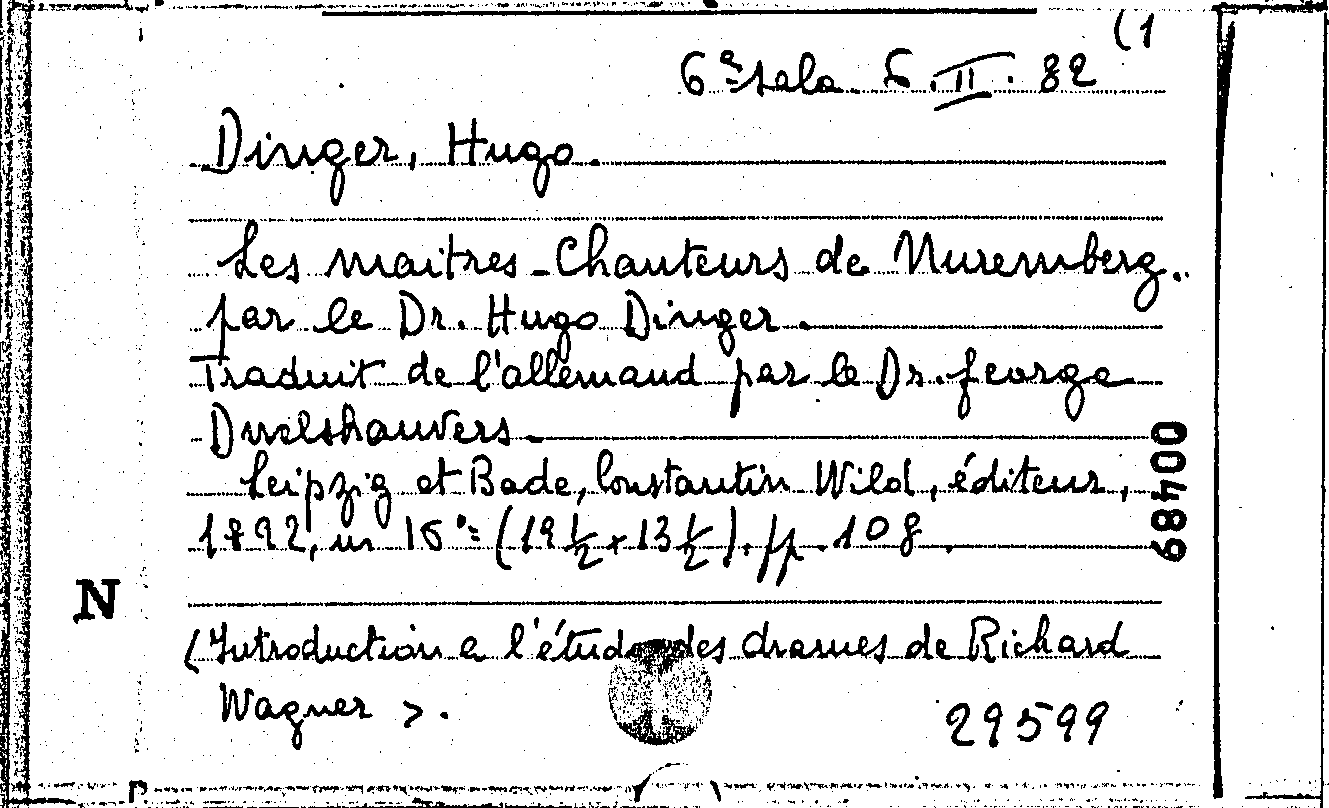 (1
6ª sala. 6. II. 82
Dinger, Hugo.
Les maitres-Chanteurs de Nuremberg.
par le Dr. Hugo Dinger.
Traduit de l'allemand par le Dr. George
Dwelshauvers.
Leipzig et Bade, Constantin Wild, éditeur,
1892, in 16°= (19 ½ x 13 ½). pp. 108.
N
(Introduction a l'étude des drames de Richard
Wagner >.
29599
00489